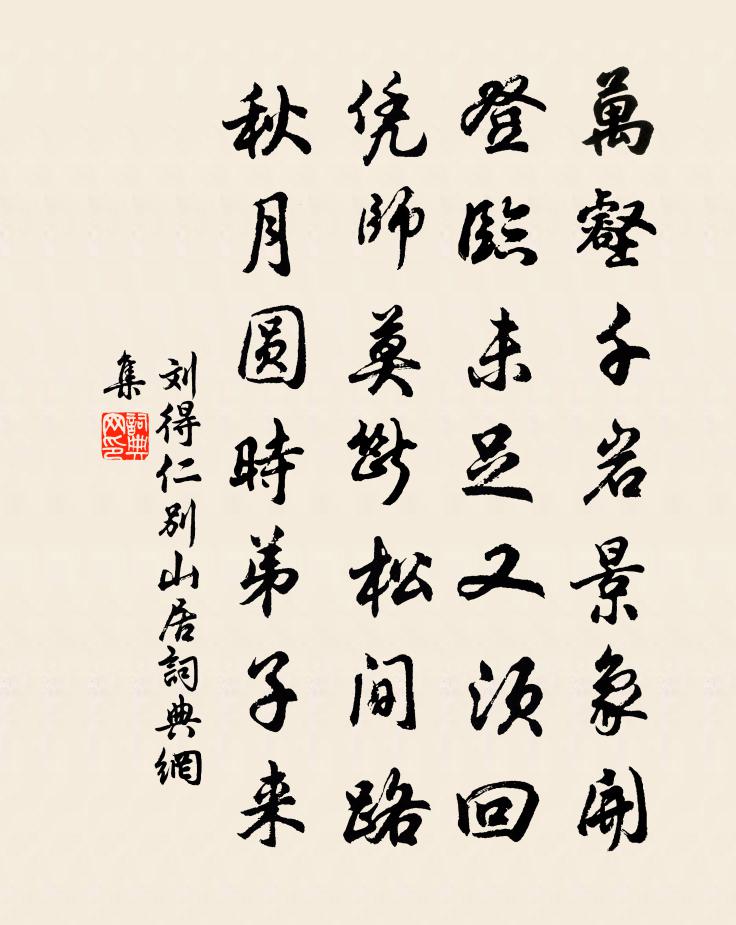 萬壑千岩景象開
登臨未足又須回
凭師莫斷松間路
秋月圓時弟子来
刘得仁别山居詞典網
集
詞典
网印